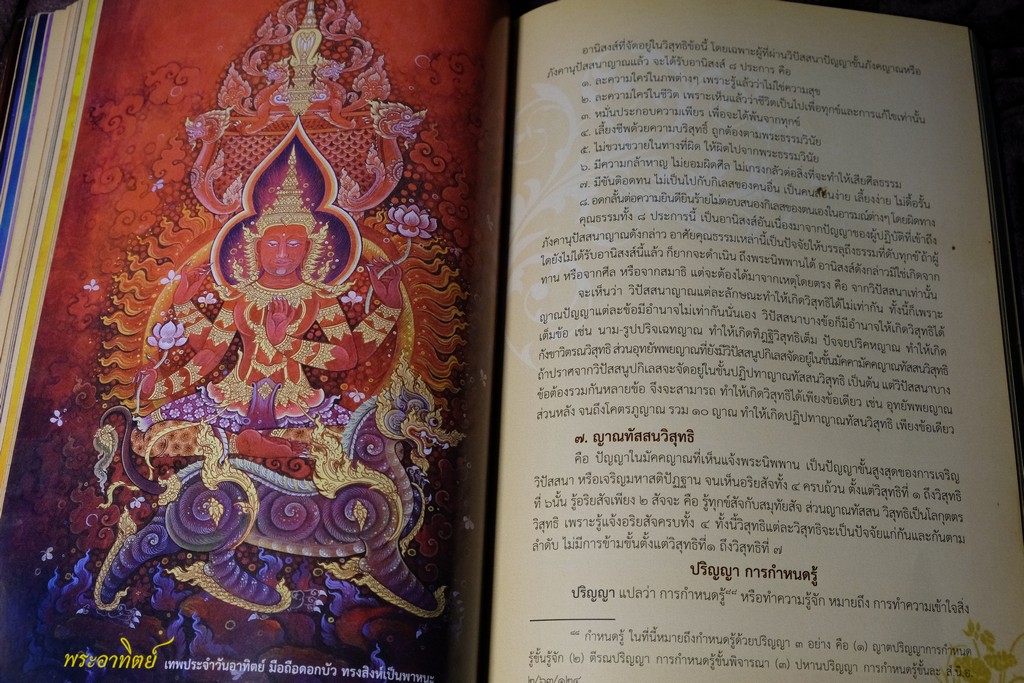 พระอาทิตย์ เทพประจำวันอาทิตย์ มือถือดอกบัว ทรงสิงห์เป็นพาหนะ
อานิสงส์ที่จัดอยู่ในวิสุทธิข้อนี้ โดยเฉพาะผู้ที่ผ่านวิปัสสนาปัญญาขั้นภังคญาณหรือ
ภังคานุปัสสนาญาณแล้ว จะได้รับอานิสงส์ ๘ ประการ คือ
๑. ละความใคร่ในภพต่างๆ เพราะรู้แล้วว่าไม่ใช่ความสุข
๒. ละความใคร่ในชีวิต เพราะเห็นแล้วว่าชีวิตเป็นไปเพื่อทุกข์และการแก้ไขเท่านั้น
๓. หมั่นประกอบความเพียร เพื่อจะได้พ้นจากทุกข์
๔. เลี้ยงชีพด้วยความบริสุทธิ์ ถูกต้องตามพระธรรมวินัย
๕. ไม่ขวนขวายในทางที่ผิด ให้ผิดไปจากพระธรรมวินัย
๖. มีความกล้าหาญ ไม่ยอมผิดศีล ไม่เกรงกลัวต่อสิ่งที่จะทำให้เสียศีลธรรม
๗. มีขันติอดทน ไม่เป็นไปกับกิเลสของคนอื่น เป็นคนสอนง่าย เลี้ยงง่าย ไม่ดื้อรั้น
๘. อดกลั้นต่อความยินดียินร้ายไม่ตอบสนองกิเลสของตนเองในอารมณ์ต่างๆ โดยผิดทาง
คุณธรรมทั้ง ๘ ประการนี้ เป็นอานิสงส์อันเนื่องมาจากปัญญาของผู้ปฏิบัติที่เข้าถึง
ภังคานุปัสสนาญาณดังกล่าว อาศัยคุณธรรมเหล่านี้เป็นปัจจัยให้บรรลุถึงธรรมที่ดับทุกข์ ถ้าผู้
ใดยังไม่ได้รับอานิสงส์นี้แล้ว ก็ยากจะดำเนิน ถึงพระนิพพานได้ อานิสงส์ดังกล่าวมิใช่เกิดจาก
ทาน หรือจากศีล หรือจากสมาธิ แต่จะต้องได้มาจากเหตุโดยตรง คือ จากวิปัสสนาเท่านั้น
จะเห็นว่า วิปัสสนาญาณแต่ละลักษณะทำให้เกิดวิสุทธิได้ไม่เท่ากัน ทั้งนี้ก็เพราะ
ญาณปัญญาแต่ละข้อมีอำนาจไม่เท่ากันนั่นเอง วิปัสสนาบางข้อก็มีอำนาจให้เกิดวิสุทธิได้
เต็มข้อ เช่น นาม-รูปปริจเฉทญาณ ทำให้เกิดทิฏฐิวิสุทธิเต็ม ปัจจยปริคหญาณ ทำให้เกิด
กังขาวิตรณวิสุทธิ ส่วนอุทยัพพยญาณที่ยังมีวิปัสสนูปกิเลสจัดอยู่ในขั้นมัคคามัคคญาณทัสสนวิสุทธิ
ถ้าปราศจากวิปัสสนูปกิเลสจะจัดอยู่ในขั้นปฏิปทาญาณทัสสนวิสุทธิ เป็นต้น แต่วิปัสสนาบาง
ข้อต้องรวมกันหลายข้อ จึงจะสามารถ ทำให้เกิดวิสุทธิได้เพียงข้อเดียว เช่น อุทยัพพยญาณ
ส่วนหลัง จนถึงโคตรภูญาณ รวม ๑๐ ญาณ ทำให้เกิดปฏิปทาญาณทัสนวิสุทธิ เพียงข้อเดียว
๗. ญาณทัสสนวิสุทธิ
คือ ปัญญาในมัคคญาณที่เห็นแจ้งพระนิพพาน เป็นปัญญาขั้นสูงสุดของการเจริญ
วิปัสสนา หรือเจริญมหาสติปัฏฐาน จนเห็นอริยสัจทั้ง ๔ ครบถ้วน ตั้งแต่วิสุทธิที่ ๑ ถึงวิสุทธิ
ที่ ๖นั้น รู้อริยสัจเพียง ๒ สัจจะ คือ รู้ทุกข์สัจกับสมุทัยสัจ ส่วนญาณทัสสน วิสุทธิเป็นโลกุตตร
วิสุทธิ เพราะรู้แจ้งอริยสัจครบทั้ง ๔ ทั้งนี้วิสุทธิแต่ละวิสุทธิจะเป็นปัจจัยแก่กันและกันตาม
ลำดับ ไม่มีการข้ามขั้นตั้งแต่วิสุทธิที่๑ ถึงวิสุทธิที่ ๗
ปริญญา การกำหนดรู้
ปริญญา แปลว่า การกำหนดรู้๘๘ หรือทำความรู้จัก หมายถึง การทำความเข้าใจสิ่ง
๘๘ กำหนดรู้ ในที่นี้หมายถึงกำหนดรู้ด้วยปริญญา ๓ อย่าง คือ (๑) ญาตปริญญาการกำหนด
รู้ขั้นรู้จัก (๒) ตีรณปริญญา การกำหนดรู้ขั้นพิจารณา (๓) ปหานปริญญา การกำหนดรู้ขั้นละ
๒/๖๓/๑๒๔